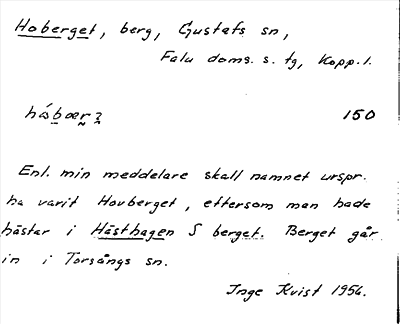 Hoberget, berg, Gustafs sn,
Falu doms. s. tg, Kopp. l.
håbær 150
Enl. min meddelare skall namnet urspr.
ha varit Hovberget, eftersom man hade
hästar i Hästhagen S berget. Berget går
in i Torsångs sn.
Inge Kvist 1956.